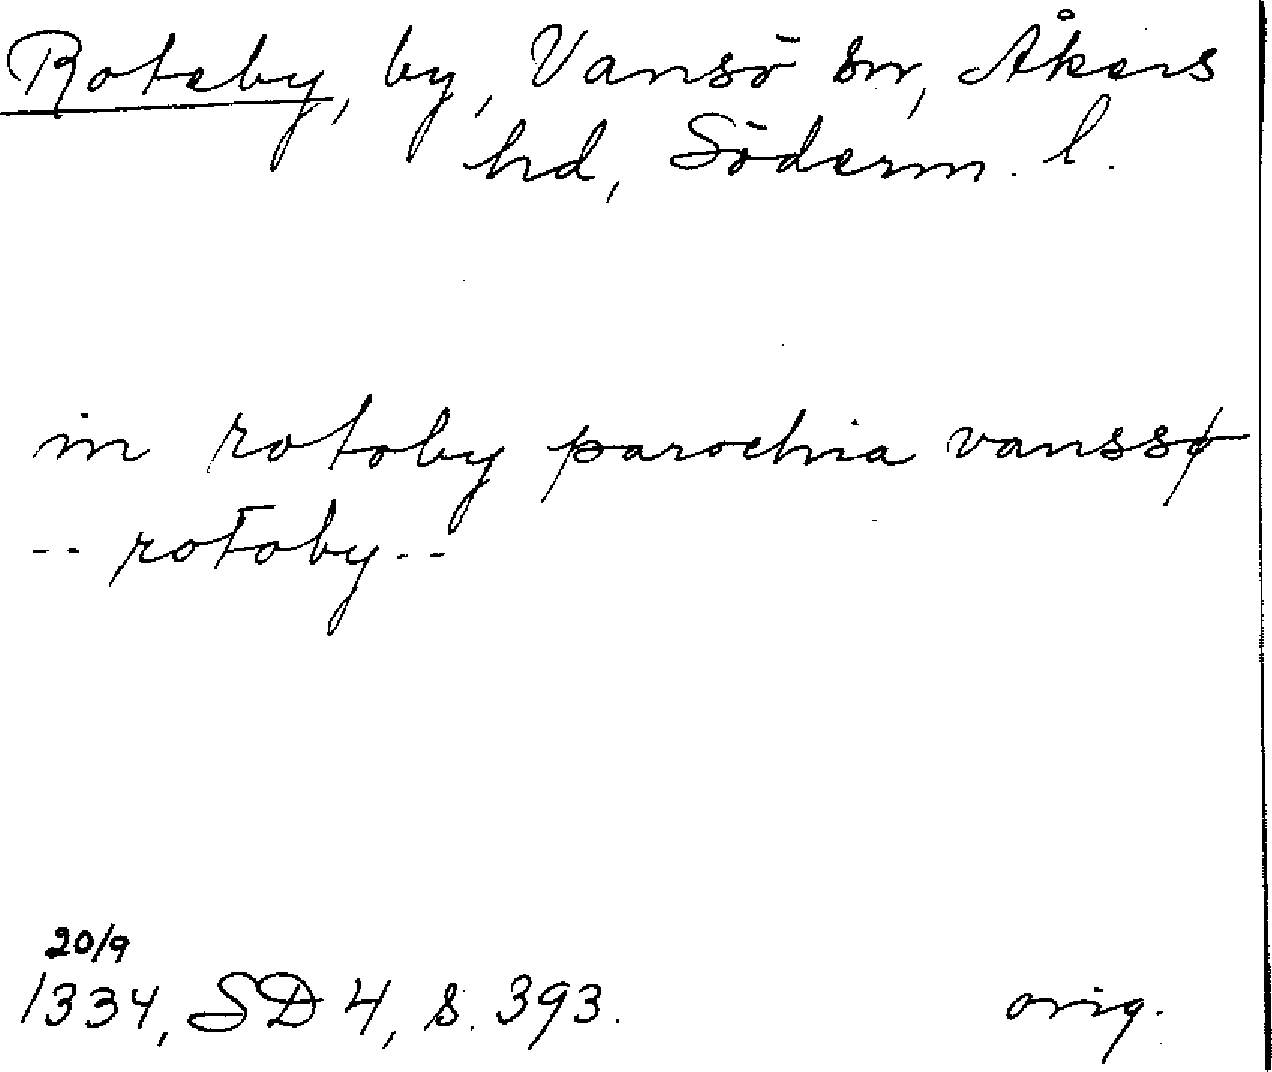 Roteby, by, Vansö sn, Åkers
hd, Söderm. l.
in rotoby parochia vanssø
-- rotoby --
20/9
1334, SD 4, s. 393.
orig.